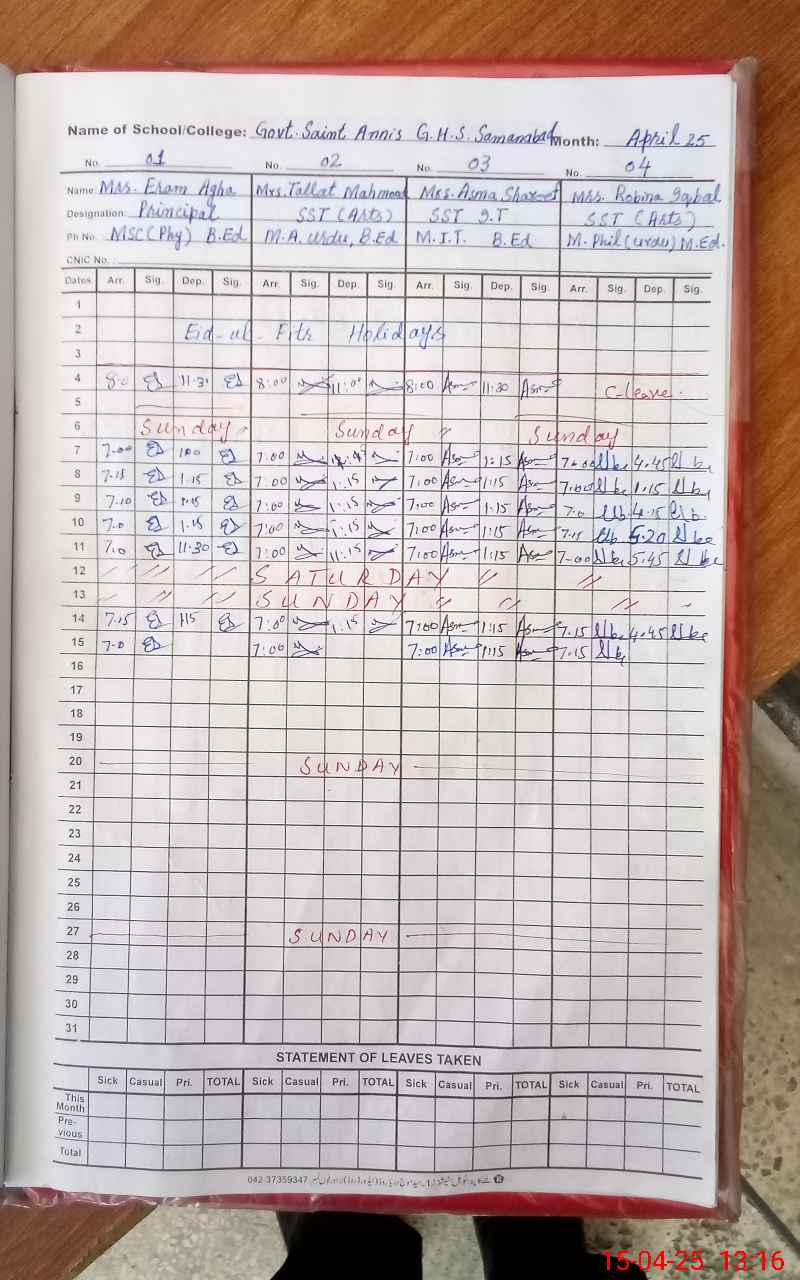 Name of School/College: Govt. Saint Annis G.H.S. Samanabad Month: April 25
No. 01 No. 02 No. 03 No. 04
Name: Mrs. Eram Agha Mrs. Tallat Mahmood Mrs. Asma Mrs. Robina Iqbal
Designation: Principal SST (Arts) SST I.T SST (Arts)
Ph No. MSC (Phy) B.Ed M.A. urdu, B.Ed M.I.T. B.Ed M. Phil (urdu) M.Ed.
CNIC No. :
Dates Arr. Sig. Dep. Sig. Arr. Sig. Dep. Sig. Arr. Sig. Dep. Sig. Arr. Sig. Dep. Sig.
1
2 Eid-ul-Fitr Holidays
3
4 8.0 11.30 8:00 11:0 8:00 11:30 C-leave.
5
6 Sunday Sunday Sunday
7 7.00 1.00 7.00 7:00 1:15 7.00 4.45
8 7.15 1.15 7.00 1.15 7:00 1:15 7.00 1.15
9 7.10 1.15 7:00 1.15 7:00 1:15 7.0 4.15
10 7.0 1.15 7:00 1:15 7:00 1:15 7.15 5.20
11 7.0 11.30 7:00 11:15 7:00 1:15 7.00 5.45
12 " " " SATURDAY " "
13 " " " SUNDAY " " "
14 7.15 1.15 7:00 1.15 7:00 1:15 7.15 4.45
15 7.0 7:00 7:00 1:15 7.15
16
17
18
19
20 SUNDAY
21
22
23
24
25
26
27 SUNDAY
28
29
30
31
STATEMENT OF LEAVES TAKEN
Sick Casual Pri. TOTAL Sick Casual Pri. TOTAL Sick Casual Pri. TOTAL Sick Casual Pri. TOTAL
This Month
Pre-vious
Total
042-37359347
15-04-25 13:16